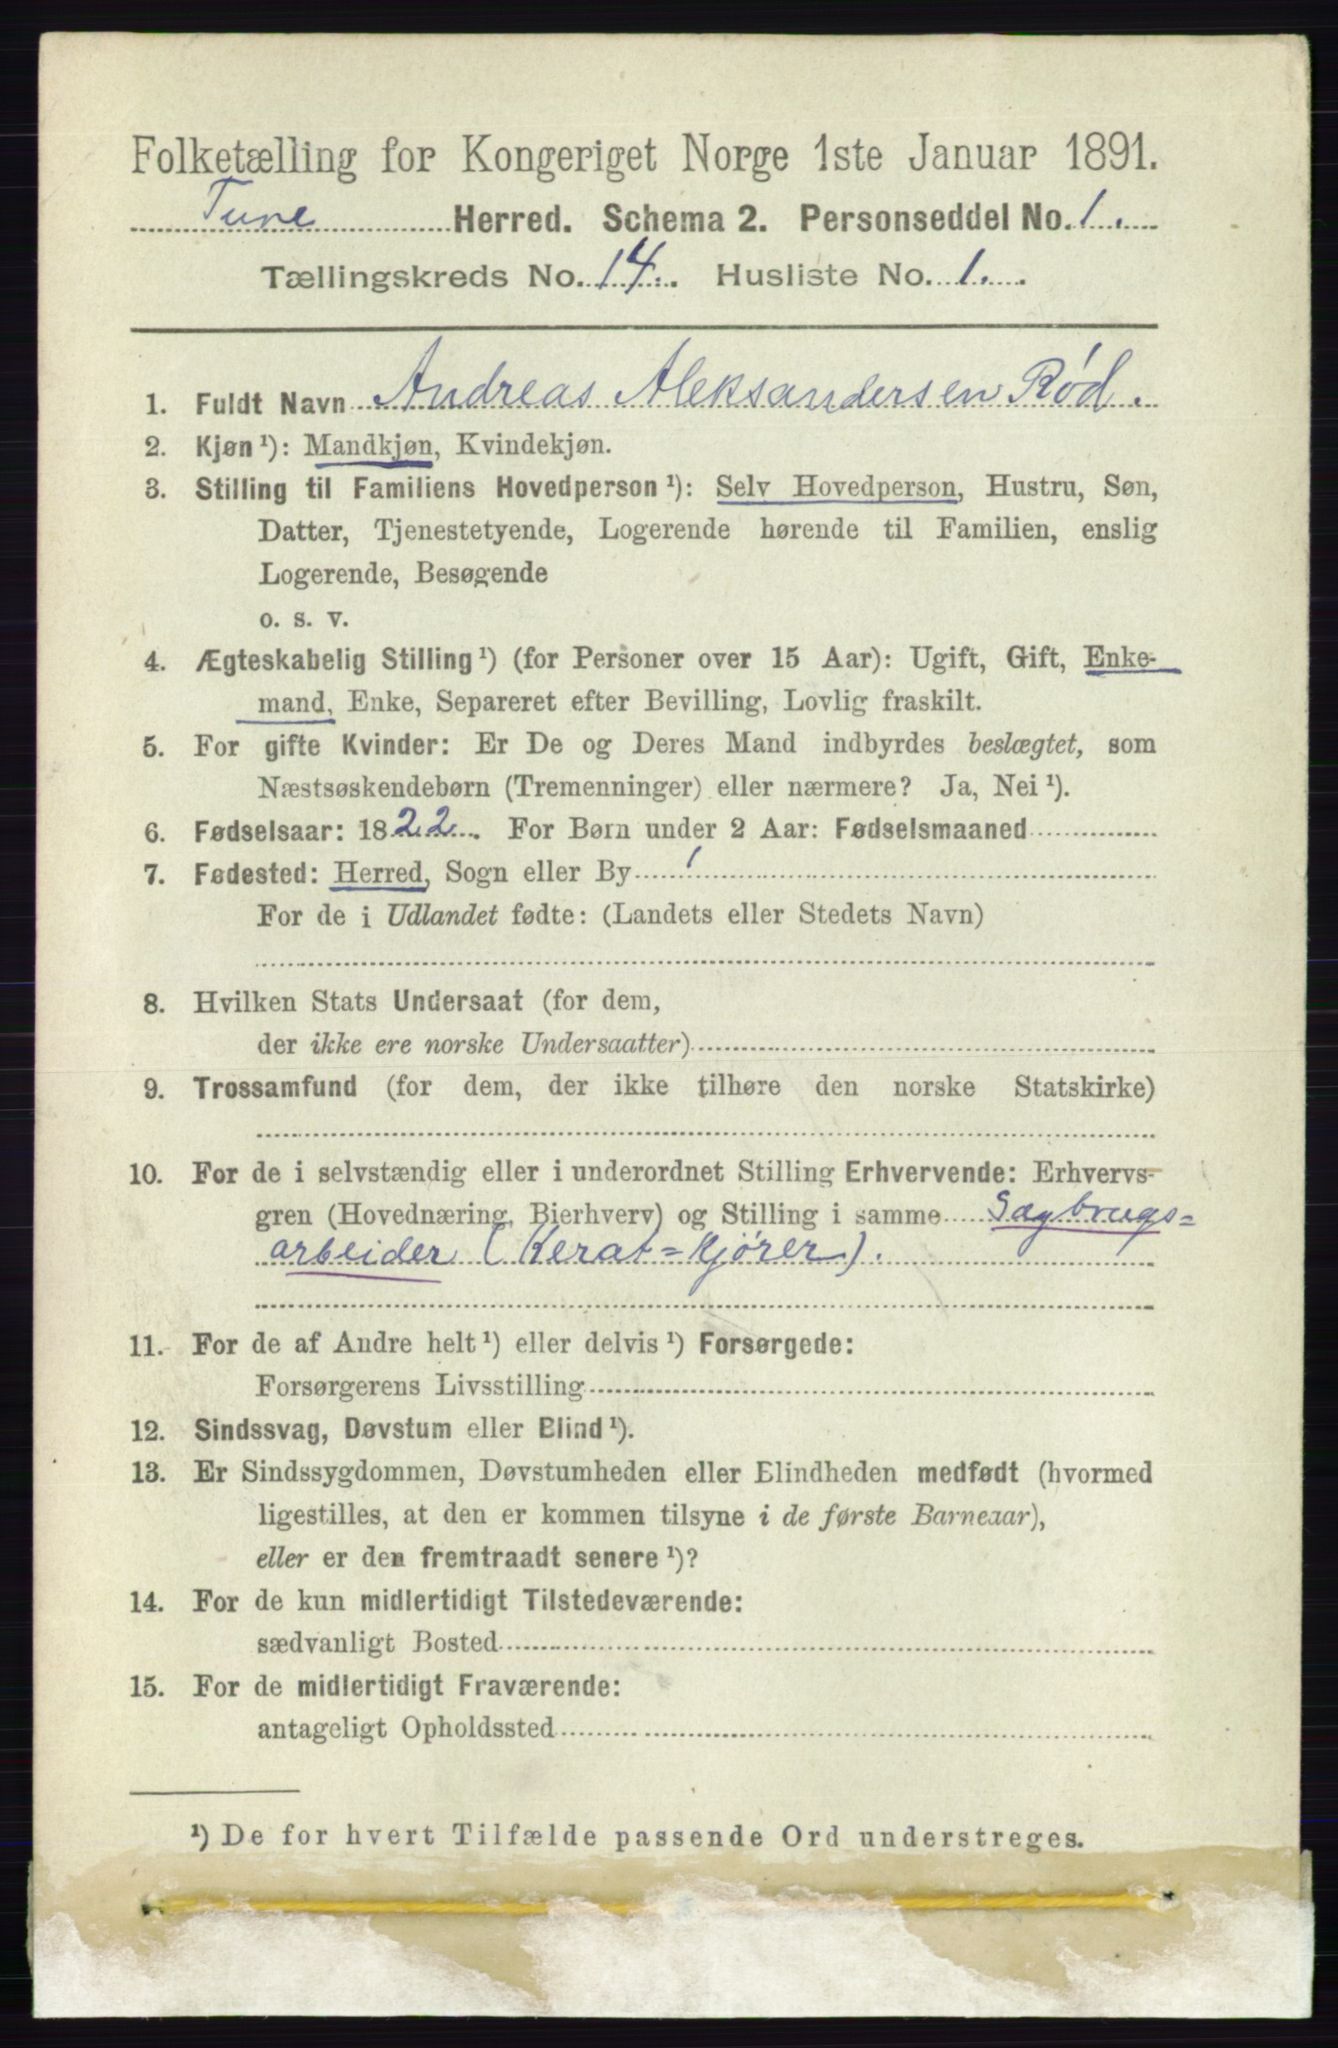 Folketælling for Kongeriget Norge 1ste Januar 1891.
Tune Herred. Schema 2. Personseddel No. 1.
Tællingskreds No. 14. Husliste No. 1.
1. Fuldt Navn Andreas Aleksandersen Rød.
2. Kjøn¹): Mandkjøn, Kvindekjøn.
3. Stilling til Familiens Hovedperson¹): Selv Hovedperson, Hustru, Søn,
Datter, Tjenestetyende, Logerende hørende til Familien, enslig
Logerende, Besøgende
o. s. v.
4. Ægteskabelig Stilling¹) (for Personer over 15 Aar): Ugift, Gift, Enke-
mand, Enke, Separeret efter Bevilling, Lovlig fraskilt.
5. For gifte Kvinder: Er De og Deres Mand indbyrdes beslægtet, som
Næstsøskendebørn (Tremenninger) eller nærmere? Ja, Nei¹).
6. Fødselsaar: 1822. For Børn under 2 Aar: Fødselsmaaned
7. Fødested: Herred, Sogn eller By
For de i Udlandet fødte: (Landets eller Stedets Navn)
8. Hvilken Stats Undersaat (for dem,
der ikke ere norske Undersaatter)
9. Trossamfund (for dem, der ikke tilhøre den norske Statskirke)
10. For de i selvstændig eller i underordnet Stilling Erhvervende: Erhvervs-
gren (Hovednæring, Bierhverv) og Stilling i samme Sagbrugs=
arbeider (Kerat=Kjører).
11. For de af Andre helt¹) eller delvis¹) Forsørgede:
Forsørgerens Livsstilling
12. Sindssvag, Døvstum eller Blind¹).
13. Er Sindssygdommen, Døvstumheden eller Blindheden medfødt (hvormed
ligestilles, at den er kommen tilsyne i de første Barneaar),
eller er den fremtraadt senere¹)?
14. For de kun midlertidigt Tilstedeværende:
sædvanligt Bosted
15. For de midlertidigt Fraværende:
antageligt Opholdssted
¹) De for hvert Tilfælde passende Ord understreges.